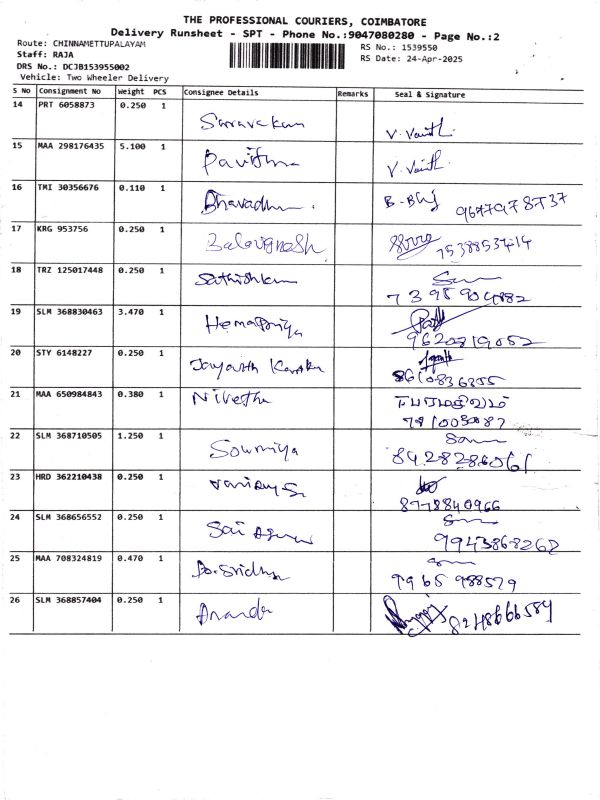 THE PROFESSIONAL COURIERS, COIMBATORE
Delivery Runsheet - SPT - Phone No.:9047080280 - Page No.:2
Route: CHINNAMETTUPALAYAM
RS No.: 1539550
Staff: RAJA
RS Date: 24-Apr-2025
DRS No.: DCJB153955002
Vehicle: Two Wheeler Delivery
S No Consignment No Weight PCS Consignee Details Remarks Seal & Signature
14 PRT 6058873 0.250 1 Saravakan
V. Vanith.
15 MAA 298176435 5.100 1 Pavithra V. Vanith.
16 TMI 30356676 0.110 1 Bhavadha.
17 KRG 953756 0.250 1 Balavignesh
18 TRZ 125017448 0.250 1 Sathishkum
19 SLM 368830463 3.470 1 Hemapriya
20 STY 6148227 0.250 1
21 MAA 650984843 0.380 1 Nivetha
22 SLM 368710505 1.250 1 Sowmiya
8428286061
23 HRD 362210438 0.250 1
8778840966
24 SLM 368656552 0.250 1 Sai
9943868262
25 MAA 708324819 0.470 1 Sridha
9965 988579
26 SLM 368857404 0.250 1 Ananda 8248666589